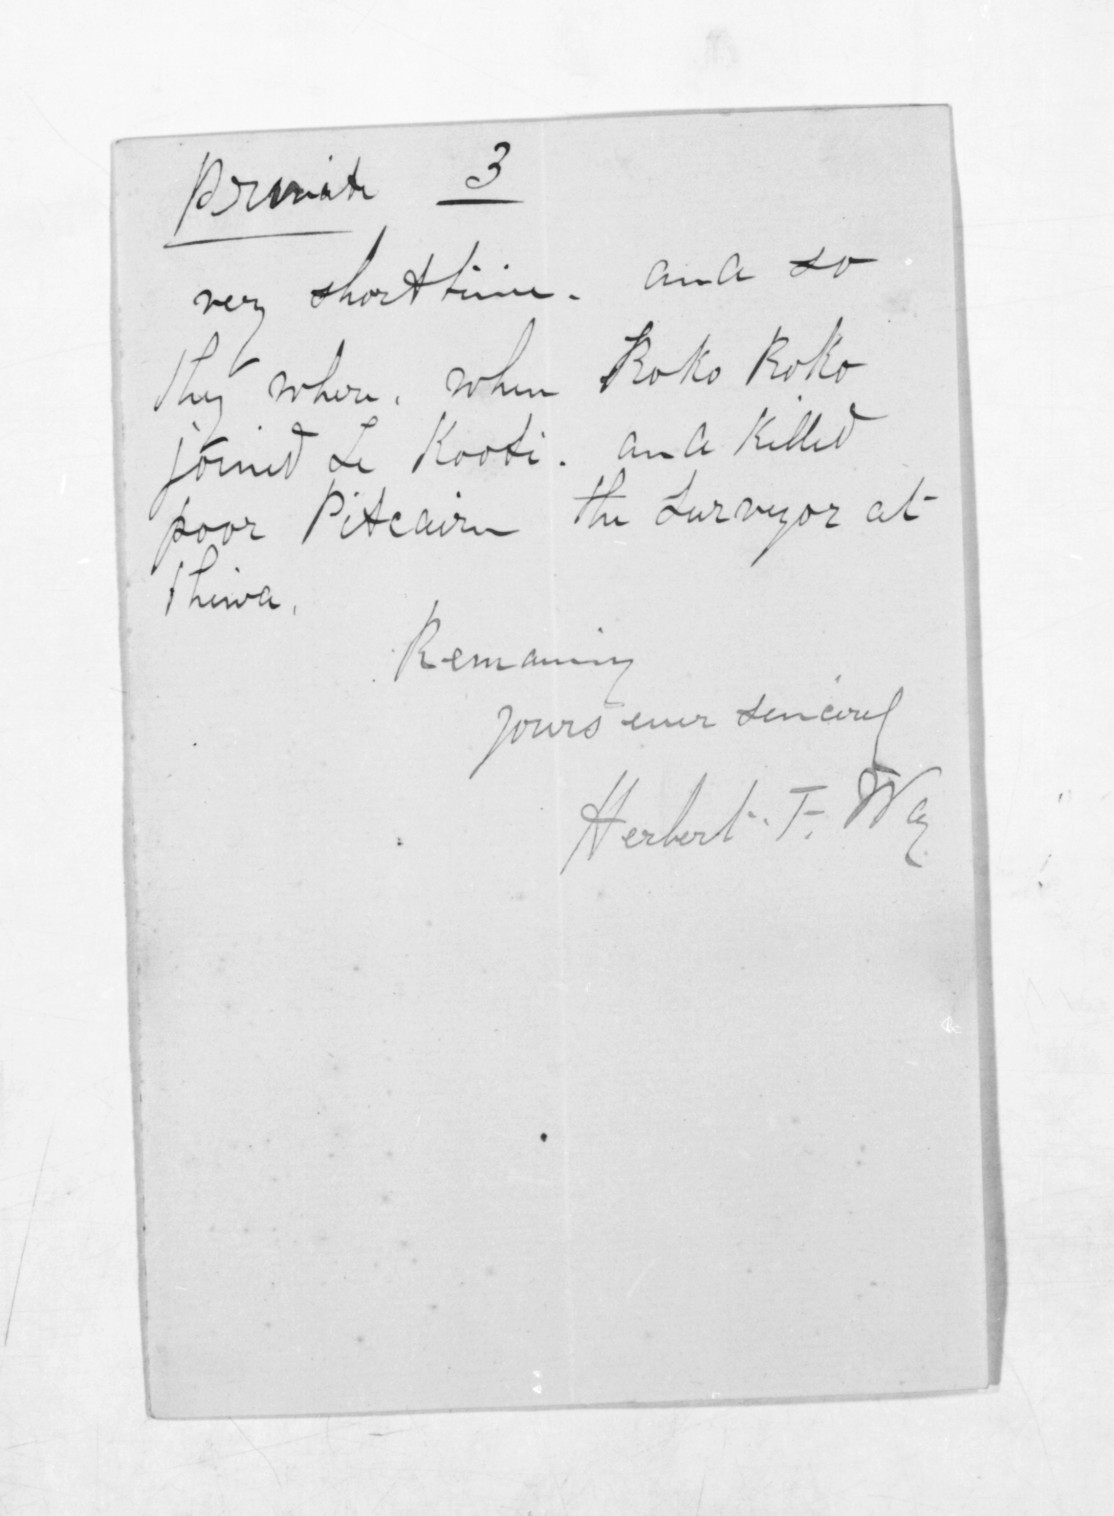 Private 3
very short time. and so
they where. when Roko Roko
joined Te Kooti. and killed
poor Pitcairn the Surveyor at
thiwa.
Remaining
yours ever sincerely
Herbert. F. Way